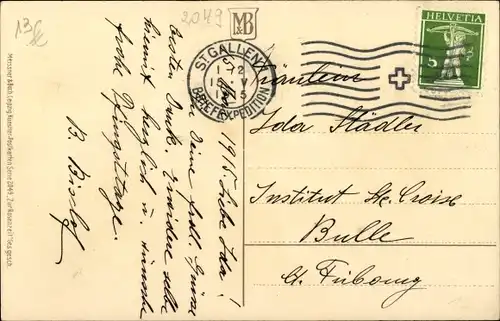 13 €
2049
M B & B
HELVETIA
5
ST. GALLEN 1
BRIEFEXPEDITION
Meissner & Buch, Leipzig Künstler-Postkarten Serie 2049. "Zur Rosenzeit" ges. gesch.
1915. Liebe Ida!
Deine frdl. Grüsse
besten Dank. Erwidere selbe
hiemit herzlich u. wünsche
frohe Pfingsttage.
B. Bischof
Fräulein
Ida Städler
Institut Ste. Croix
Bulle
Ct. Fribourg